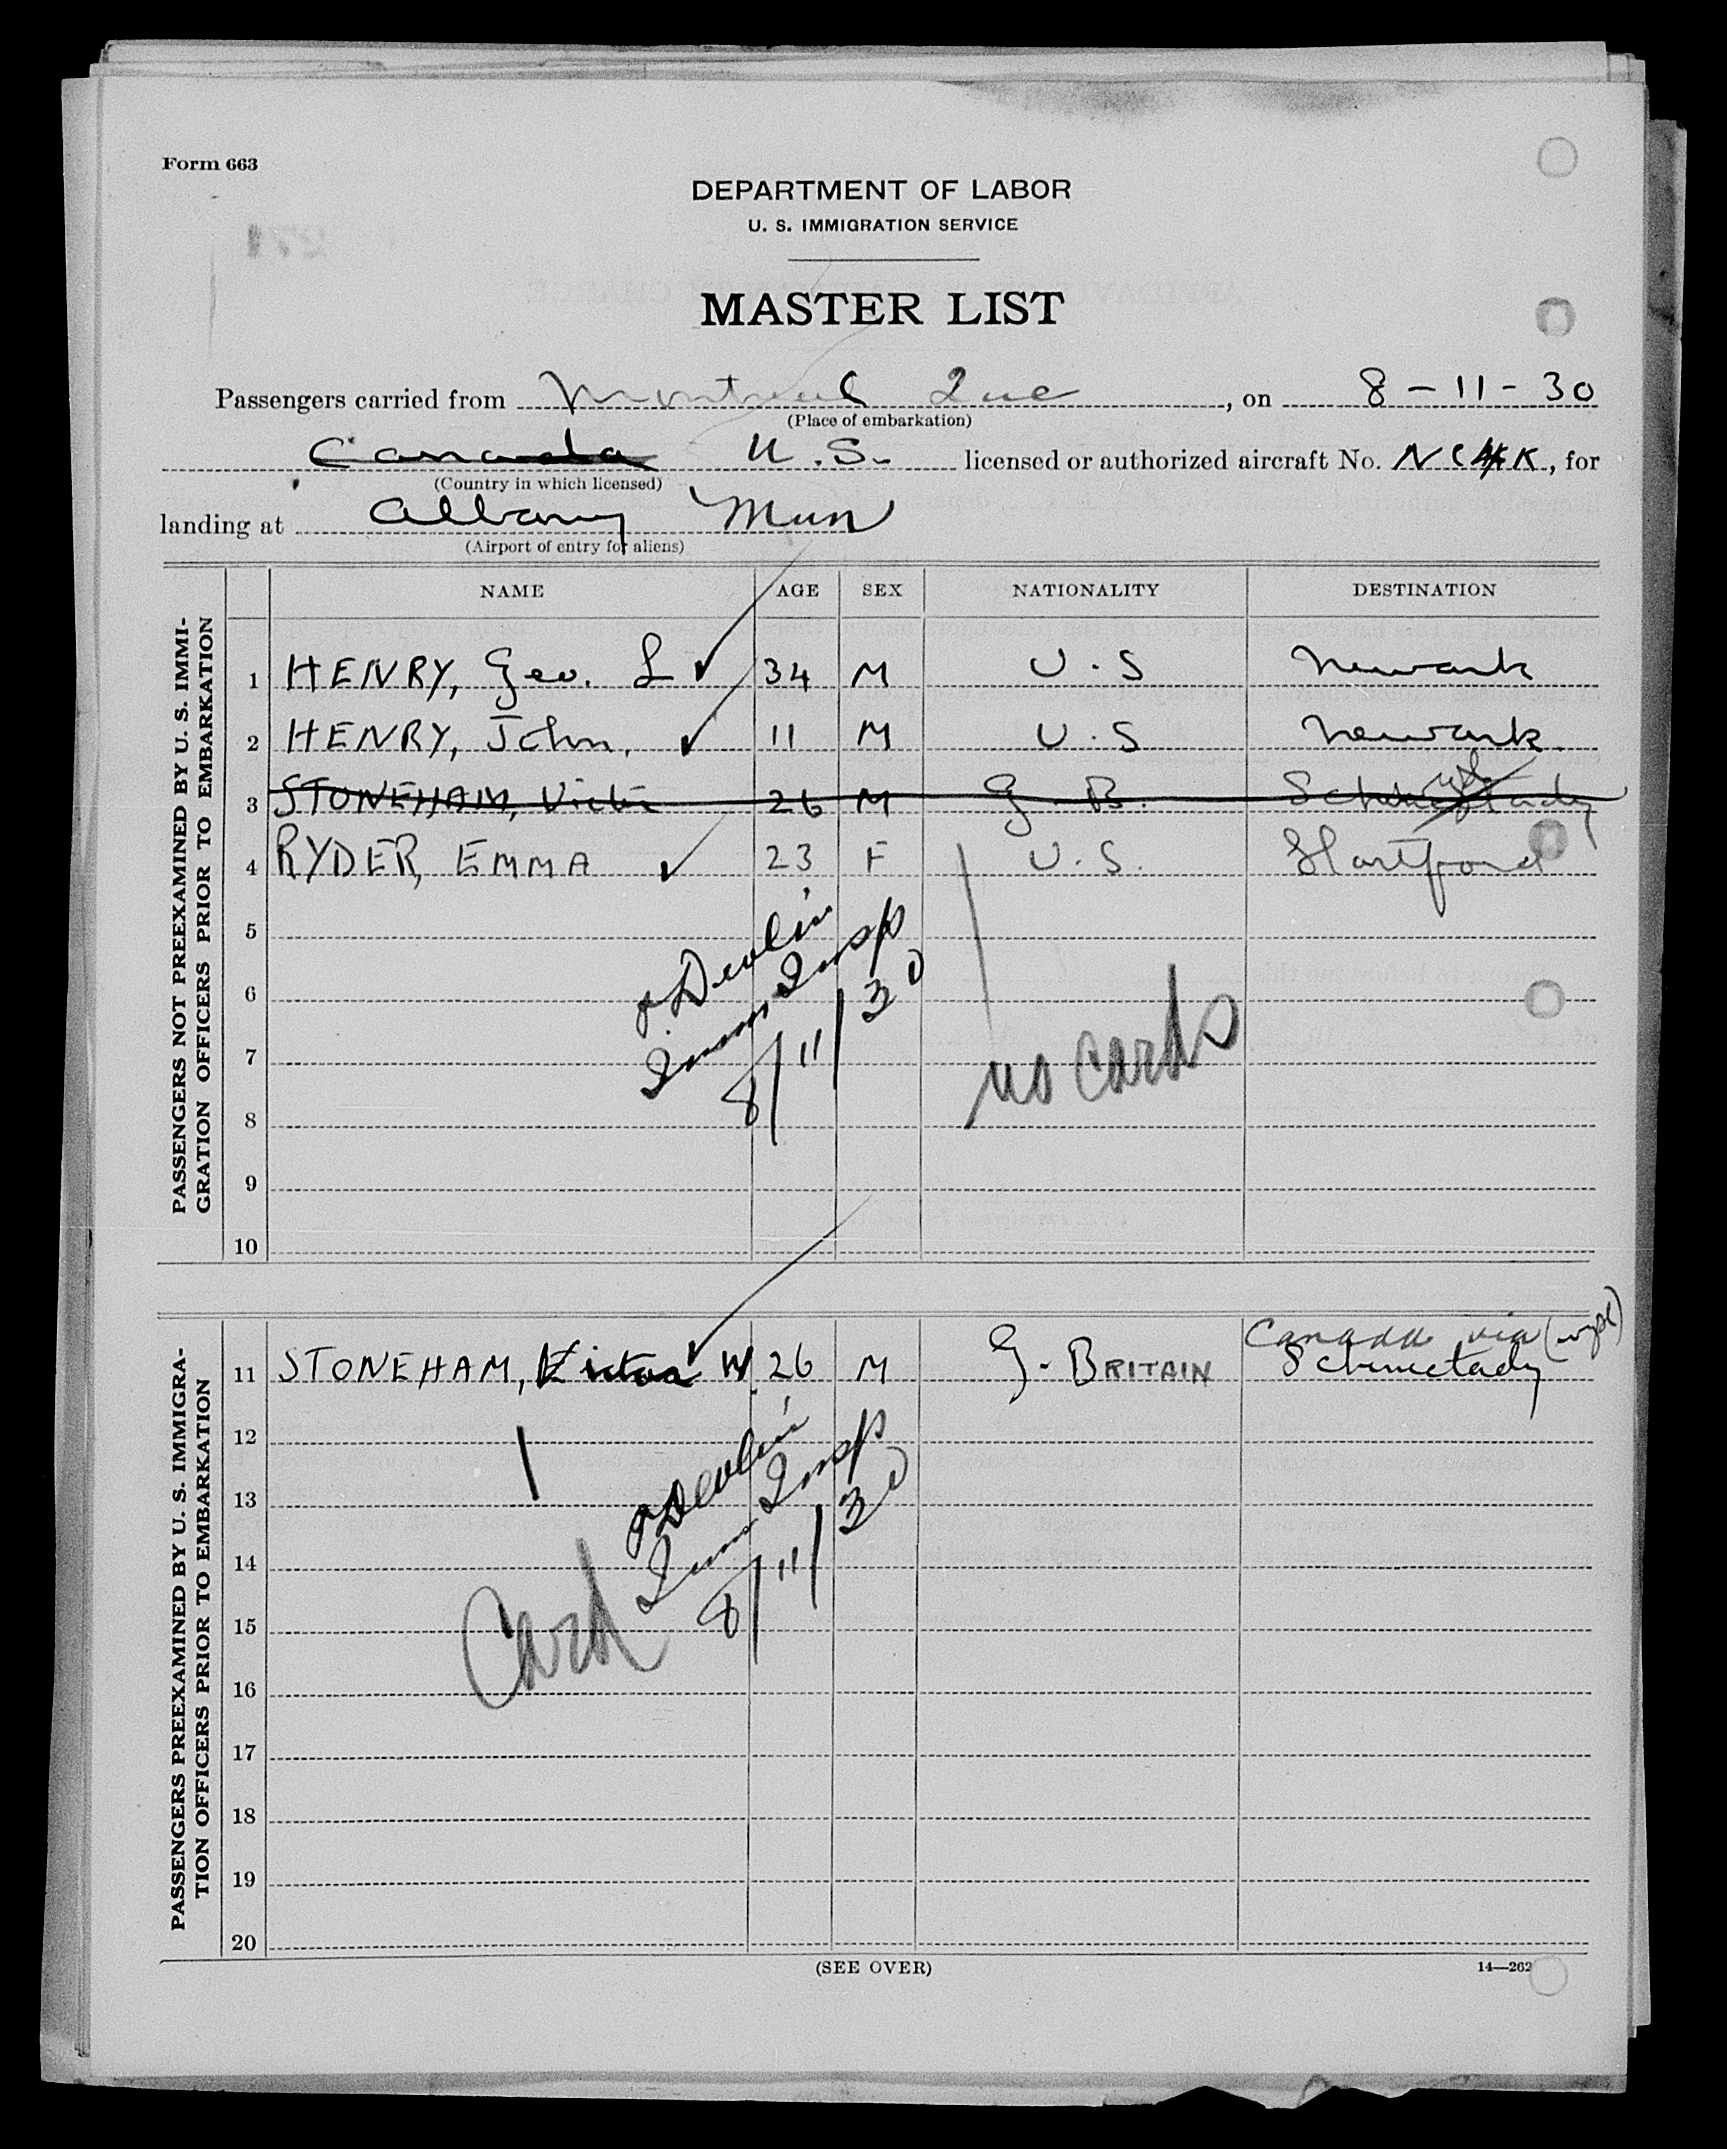 Form 663
DEPARTMENT OF LABOR
U. S. IMMIGRATION SERVICE
MASTER LIST
Passengers carried from Montreal Que, on 8-11-30
(Place of embarkation)
Canada U.S. licensed or authorized aircraft No. NC4K, for
(Country in which licensed)
landing at Albany Mun
(Airport of entry for aliens)
PASSENGERS NOT PREEXAMINED BY U. S. IMMI-
GRATION OFFICERS PRIOR TO EMBARKATION
NAME AGE SEX NATIONALITY DESTINATION
1 HENRY, Geo. L 34 M U.S Newark
2 HENRY, John. 11 M U.S Newark.
3 STONEHAM, Victor 26 M G. B. Schenectady
4 RYDER, EMMA 23 F U.S. Hartford
5
6
7
8
9
10
Devlin
Imm Insp
8/11/30
no cards
PASSENGERS PREEXAMINED BY U. S. IMMIGRA-
TION OFFICERS PRIOR TO EMBARKATION
Canada via
11 STONEHAM, Victor W. 26 M G. BRITAIN Schenectady
12
13
14
15
16
17
18
19
20
Devlin
Imm Insp
8/11/30
1
Card
(SEE OVER)
14—262